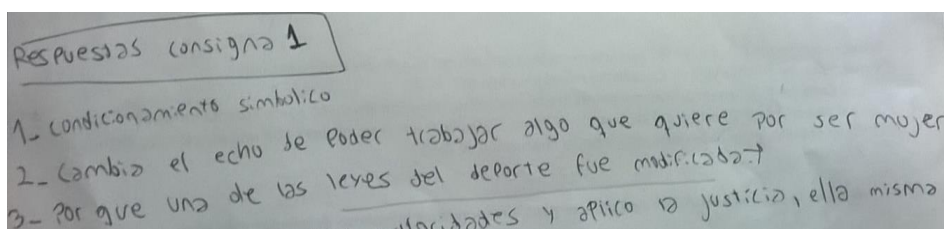 Respuestas consigna 1
1- condicionamiento simbolico
2- Cambia el echo de poder trabajar algo que quiere por ser mujer
3- Por que una de las leyes del deporte fue modificaba
y aplico la justicia, ella misma